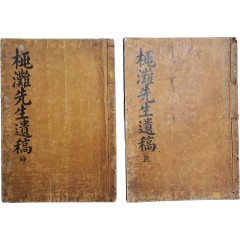 極灘先生遺稿 坤
極灘先生遺稿 乾